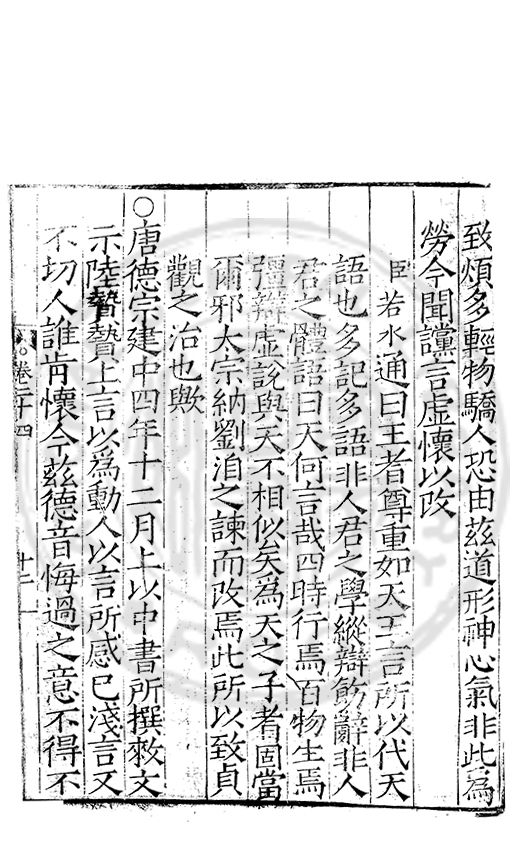 致煩多輕物驕人恐由茲道形神心氣非此為
勞今聞讜言虛懷以改
臣若水通曰王者尊重如天王言所以代天
語也多記多語非人君之學縱辯飭辭非人
君之體語曰天何言哉四時行焉百物生焉
彊辯虛說與天不相似矣為天之子者固當
爾邪太宗納劉洎之諫而改焉此所以致貞
觀之治也歟
○唐德宗建中四年十二月上以中書所撰赦文
示陸贄贄上言以為動人以言所感已淺言又
不切人誰肯懷今茲德音悔過之意不得不
卷二十四
十二